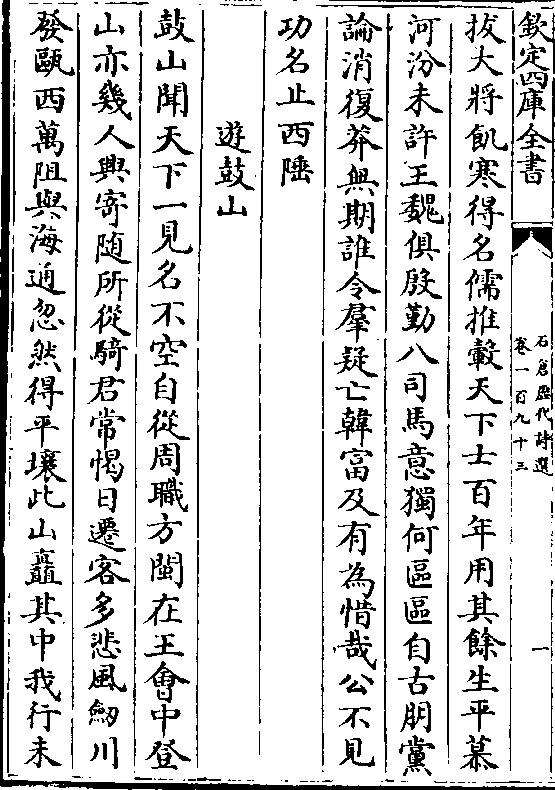 欽定四庫全書
石倉歷代詩選
卷一百九十三
一
拔大將飢寒得名儒推轂天下士百年用其餘生平慕
河汾未許王魏俱殷勤八司馬意獨何區區自古朋黨
論消復莽無期誰令羣疑亡韓富及有為惜哉公不見
功名止西陲
遊鼓山
鼓山聞天下一見名不空自從周職方閩在王會中登
山亦幾人興寄隨所從騎君常愒日遷客多悲風劒川
發甌西萬阻與海通忽然得平壤此山矗其中我行未